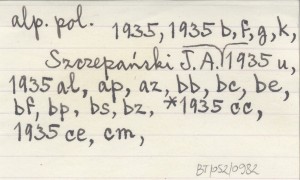 alp. pol.
1935, 1935 b, f, g, k,
Szczepański J.A. 1935 u,
1935 al, ap, az, bb, bc, be,
bf, bp, bs, bz, *1935 cc,
1935 ce, cm,
BT/052/0982